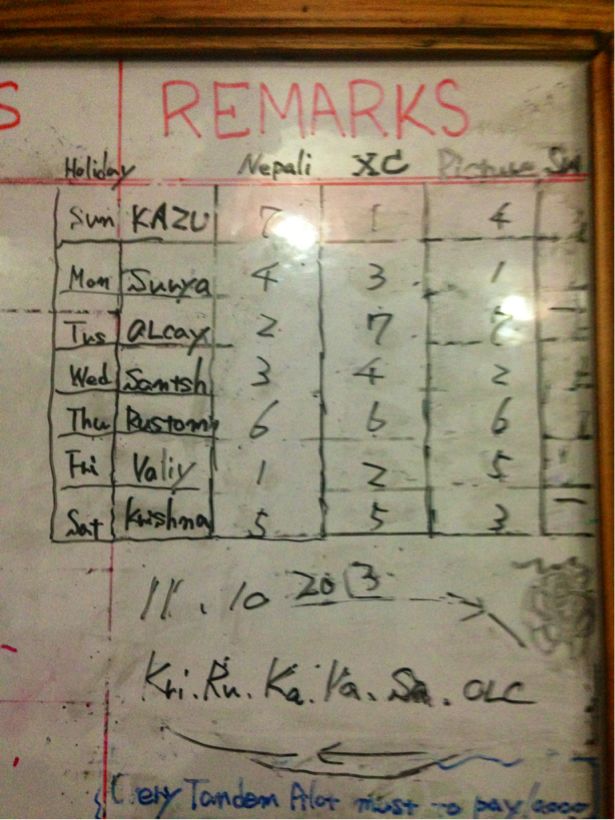 S REMARKS
Holiday Nepali XC Picture
Sun KAZU 7 1 4
Mon Surya 4 3 1
Tus OLcay 2 7
Wed Santsh 3 4 2
Thu Rustom 6 6 6
Fri Valiy 1 2 5
Sat Krishna 5 5 3
11.10 2013
Kri. Ru. Ka. Va. Sa. OLC
Tandem Pilot must to pay